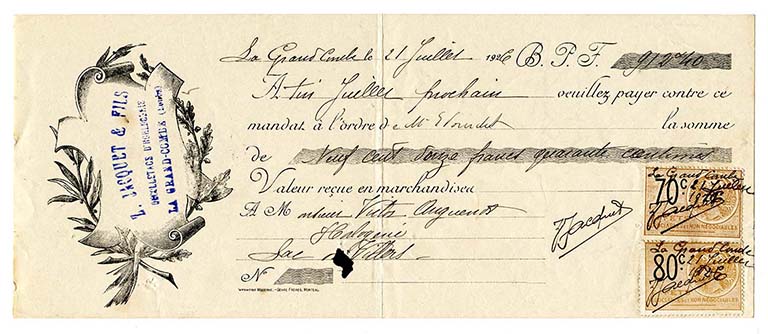 L. JACQUET & FILS
OUTILLAGES D'HORLOGERIE
LA GRAND-COMBE (Doubs)
La Grand Combe le 21 Juillet 1926 B. P. F. 912.40
A fin Juillet prochain veuillez payer contre ce
mandat à l'ordre de Mr la somme
de Neuf cent douze francs quarante centimes
Valeur reçue en marchandises
A Monsieur Victor
Horlogerie
Lac Villers
N°
Jacquet
70c
La Grand Combe
21 Juillet
1926
Jacquet
NON NÉGOCIABLES
80c
La Grand Combe
21 Juillet
1926
Jacquet
NON NÉGOCIABLES